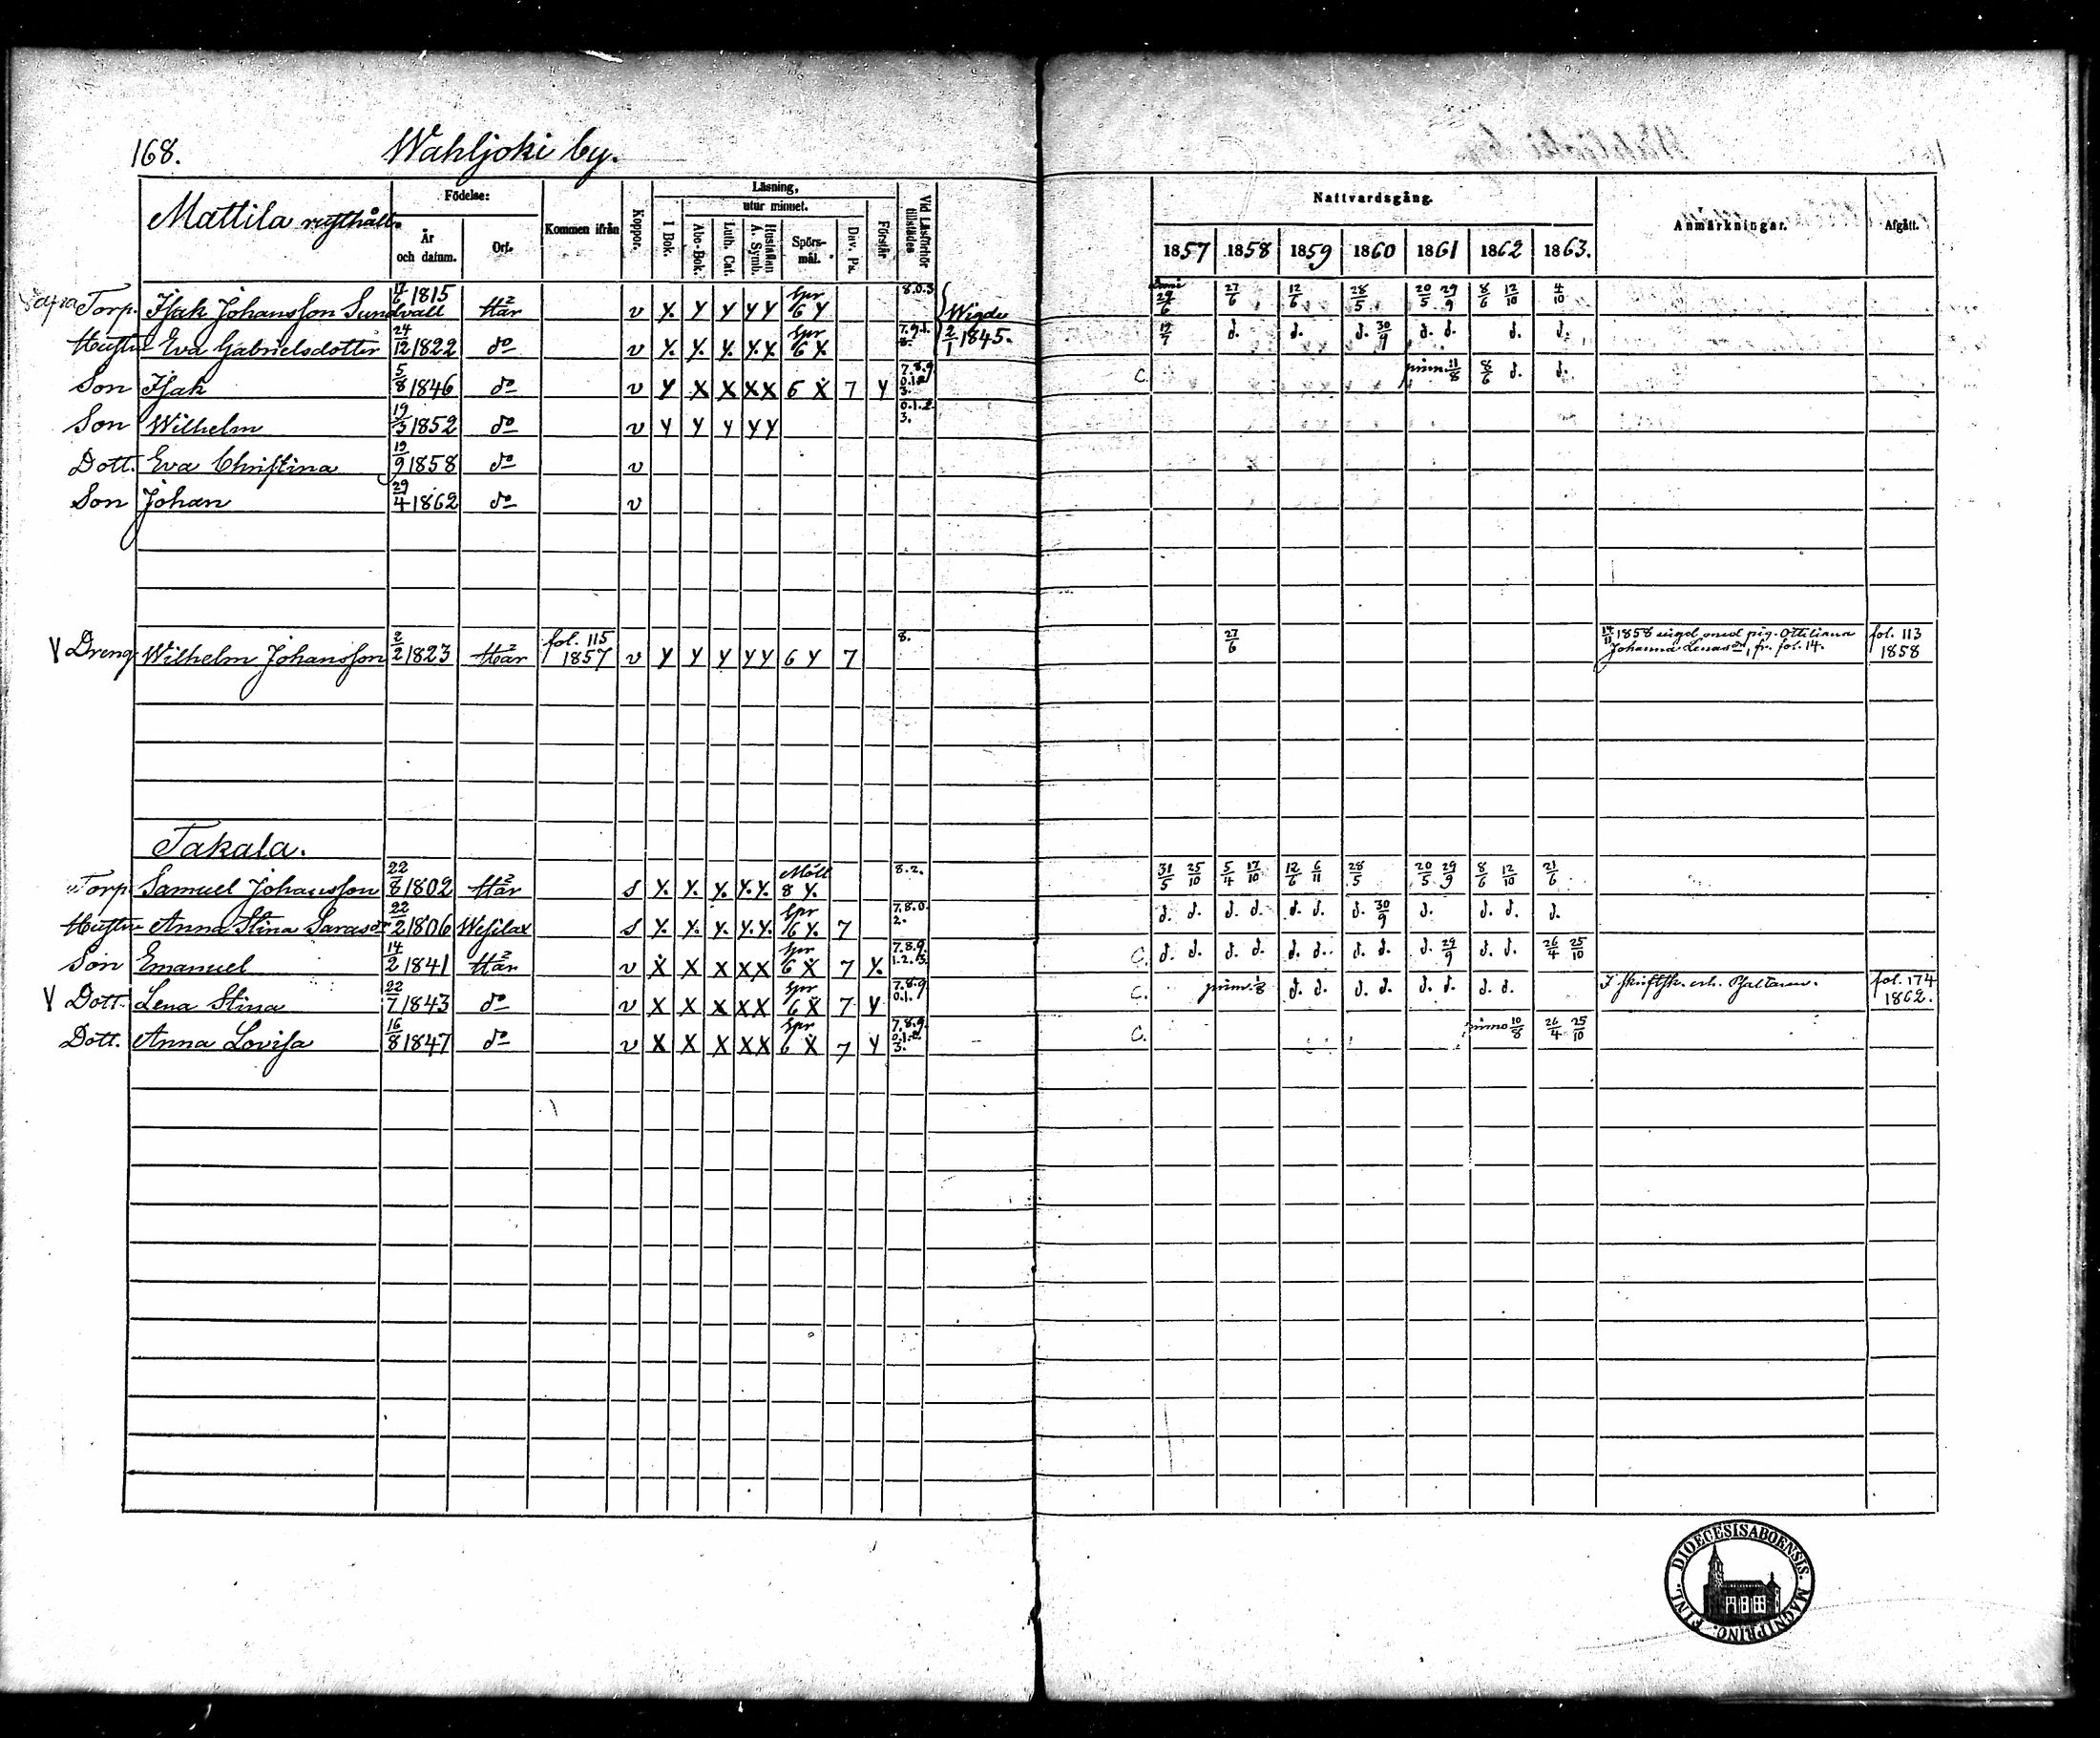 168. Wahljoki by.
Mattila rusthåll.
Födelse: År och datum. Ort.
Kommen ifrån
Koppor.
Läsning, utur minnet.
I Bok. Abc-Bok. Luth. Cat. Hustaflan A. Symb. Spörs-mål. Dav. Ps. Förstår
Vid Läsförhör tillstädes
Nattvardsgång.
1857 1858 1859 1860 1861 1862 1863.
Anmärkningar. Afgått.
Torp. Isak Johansson Sundvall 17/6 1815 Här v Y. Y Y Y Y Spr 6 Y 8.0.3 Wigde 29/6 27/6 12/6 28/5 20/5 29/9 8/6 12/10 4/10
Hustru Eva Gabrielsdotter 24/12 1822 do v Y. Y. Y. Y. X Spr 6 X 2/1 1845. d. d. d. 30/9 d. d. d. d.
Son Isak 5/8 1846 do v Y X X X X 6 X 7 Y 7.8.9 0.1.2 3. C. 8/6 d. d.
Son Wilhelm 19/3 1852 do v Y Y Y Y Y 0.1.2. 3.
Dott. Eva Christina 19/9 1858 do v
Son Johan 29/4 1862 do v
Y Dreng Wilhelm Johansson 2/2 1823 Här fol. 115 1857 v Y Y Y Y Y 6 Y 7 8. 27/6 1858 vigd med pig. Ottiliana Johanna Lenasdr, fr. fol. 14. fol. 113 1858
Takala.
Torp. Samuel Johansson 22/8 1802 Här s Y. Y. Y. Y. Y. 8 Y. 8.2. 31/5 25/10 5/4 17/10 12/6 6/11 28/5 20/5 29/9 8/6 12/10 21/6
Hustru Anna Stina Sarasdr 22/2 1806 Wesilax s Y. Y. Y. Y. Y. Spr 6 Y. 7 7.8.0. 2. d. d. d. d. d. d. d. 30/9 d. d. d. d.
Son Emanuel 14/2 1841 Här v X X X X X Spr 6 X 7 Y. 7.8.9. 1.2.3. C. d. d. d. d. d. d. d. d. d. 29/9 d. d. 26/4 25/10
Y Dott. Lena Stina 22/7 1843 do v X X X X X Spr 6 X 7 Y 7.8.9 0.1. C. d. d. d. d. d. d. d. d. fol. 174 1862.
Dott. Anna Lovisa 16/8 1847 do v X X X X X Spr 6 X 7 Y 7.8.9. 0.1.2. 3. C. 10/8 26/4 25/10
DIOECESISABOENSIS. MAGNIPRING. FINL.